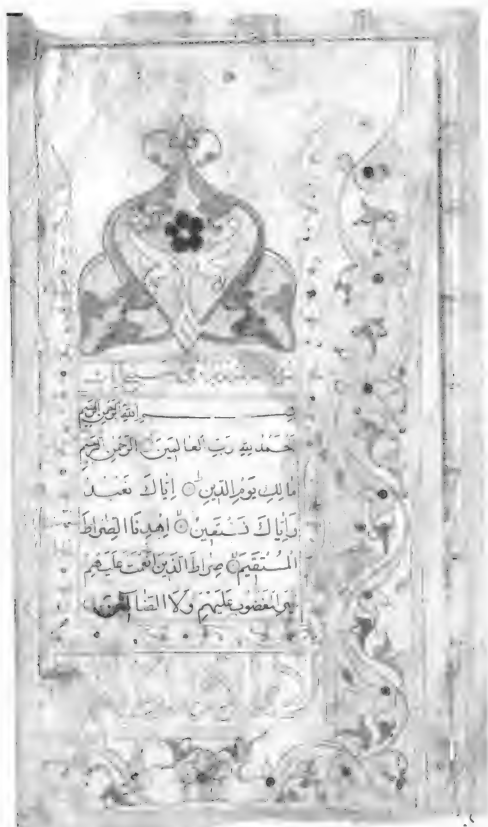 بِسْــــــــمِ اللهِ الرَّحْمٰنِ الرَّحِيْمِ
اَلْحَمْدُ لِلهِ رَبِّ الْعَالَمِيْنَ الرَّحْمٰنِ الرَّحِيْمِ
مَالِكِ يَوْمِ الدِّيْنِ ۝ اِيَّاكَ نَعْبُدُ
وَاِيَّاكَ نَسْتَعِيْنُ ۝ اِهْدِنَا الصِّرَاطَ
الْمُسْتَقِيْمَ ۝ صِرَاطَ الَّذِيْنَ اَنْعَمْتَ عَلَيْهِمْ
غَيْرِ الْمَغْضُوْبِ عَلَيْهِمْ وَلَا الضَّآلِّيْنَ